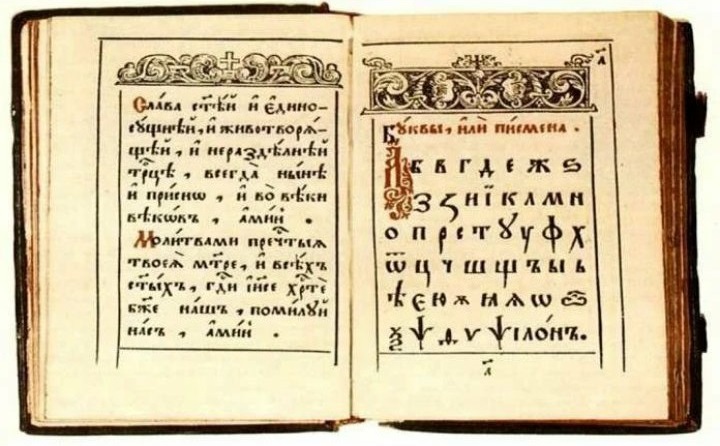 Сла́ва ст҃ѣ́й и҆ є҆ди́но-
сꙋ́щнѣй, и҆ животворѧ́-
щѣй, и҆ нераздѣ́лнѣй
трⷪ҇цѣ, всегда̀ ны́нѣ
и҆ при́снѡ, и҆ во вѣ́ки
вѣкѡ́въ, а҆ми́нь.
Моли́твами пречⷭ҇тыѧ
твоеѧ̀ мт҃ре, и҆ всѣ́хъ
ст҃ы́хъ, гдⷭ҇и і҆и҃се хрⷭ҇тѐ
бж҃е на́шъ, поми́лꙋй
на́съ, а҆ми́нь.
Бꙋ́квы, и҆лѝ писмена̀.
А б в г д е ж ѕ
з ꙁ и ї к л м н
о п р с т ꙋ у ф х
ѿ ц ч ш щ ъ ы ь
ѣ є ю ѫ ꙗ ѧ ѡ
ѯ ѱ ѵ ѱїло́нъ.